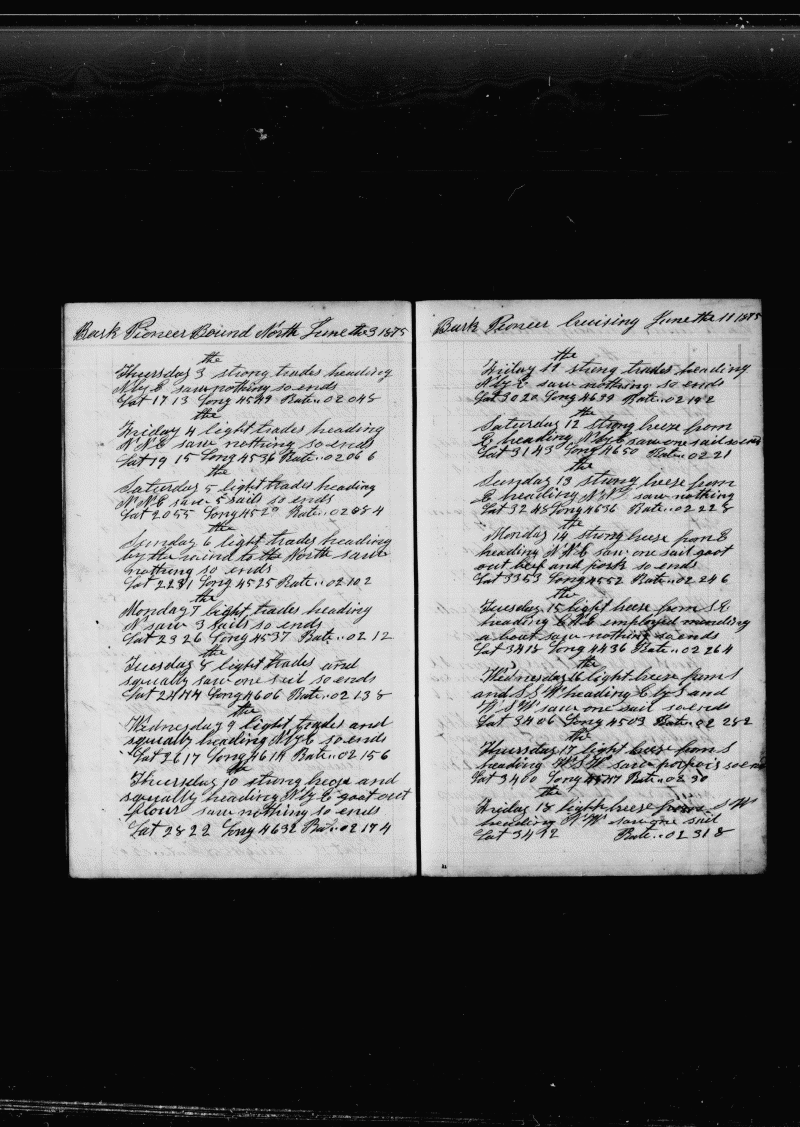 Bark Pioneer Bound North June the 3 1875
the
Thursday 3 strong trades heading
N by E saw nothing so ends
Lat 17 13 Long 4549 Rate .. 02 048
the
Friday 4 light trades heading
N N E saw nothing so ends
Lat 19 15 Long 4536 Rate .. 02 06 6
the
Saturday 5 light trades heading
N N E saw 5 sails so ends
Lat 2055 Long 4520 Rate .. 02 08 4
the
Sunday 6 light trades heading
by the wind to the North saw
nothing so ends
Lat 2231 Long 4525 Rate .. 02 102
the
Monday 7 light trades heading
N saw 3 sails so ends
Lat 23 26 Long 4537 Rate .. 02 12
the
Tuesday 8 light trades and
squally saw one sail so ends
Lat 2444 Long 4606 Rate .. 02 13 8
the
Wednesday 9 light trades and
squally heading N by E so ends
Lat 2617 Long 4614 Rate .. 02 156
the
Thursday 10 strong breese and
squally heading N by E goot out
flour saw nothing so ends
Lat 28 22 Long 4632 Rate .. 02 17 4
Bark Pioneer Cruising June the 11 1875
the
Friday 11 strong trades heading
N by E saw nothing so ends
Lat 3020 Long 4639 Rate .. 02 19 2
the
Saturday 12 strong breese from
E heading N by E saw one sail so ends
Lat 3143 Long 4650 Rate .. 02 21
the
Sunday 13 strong breese from
E heading saw nothing
Lat 32 45 Long 4636 Rate .. 02 22 8
the
Monday 14 strong breese from E
heading N N E saw one sail goot
out beef and pork so ends
Lat 3353 Long 4552 Rate .. 02 24 6
the
Tuesday 15 light breese from S E
heading E N E employed mending
a boat saw nothing so ends
Lat 3418 Long 4436 Rate .. 02 26 4
the
Wednesday 16 light breese from S
and S S W heading E by S and
W S W saw one sail so ends
Lat 3406 Long 4503 Rate .. 02 282
the
Thursday 17 light breese from S
heading W S W saw porpois so ends
Lat 3400 Long 4547 Rate .. 02 30
the
Friday 18 light breese from S W
heading N W saw one sail
Lat 34 12 Rate .. 02 31 8